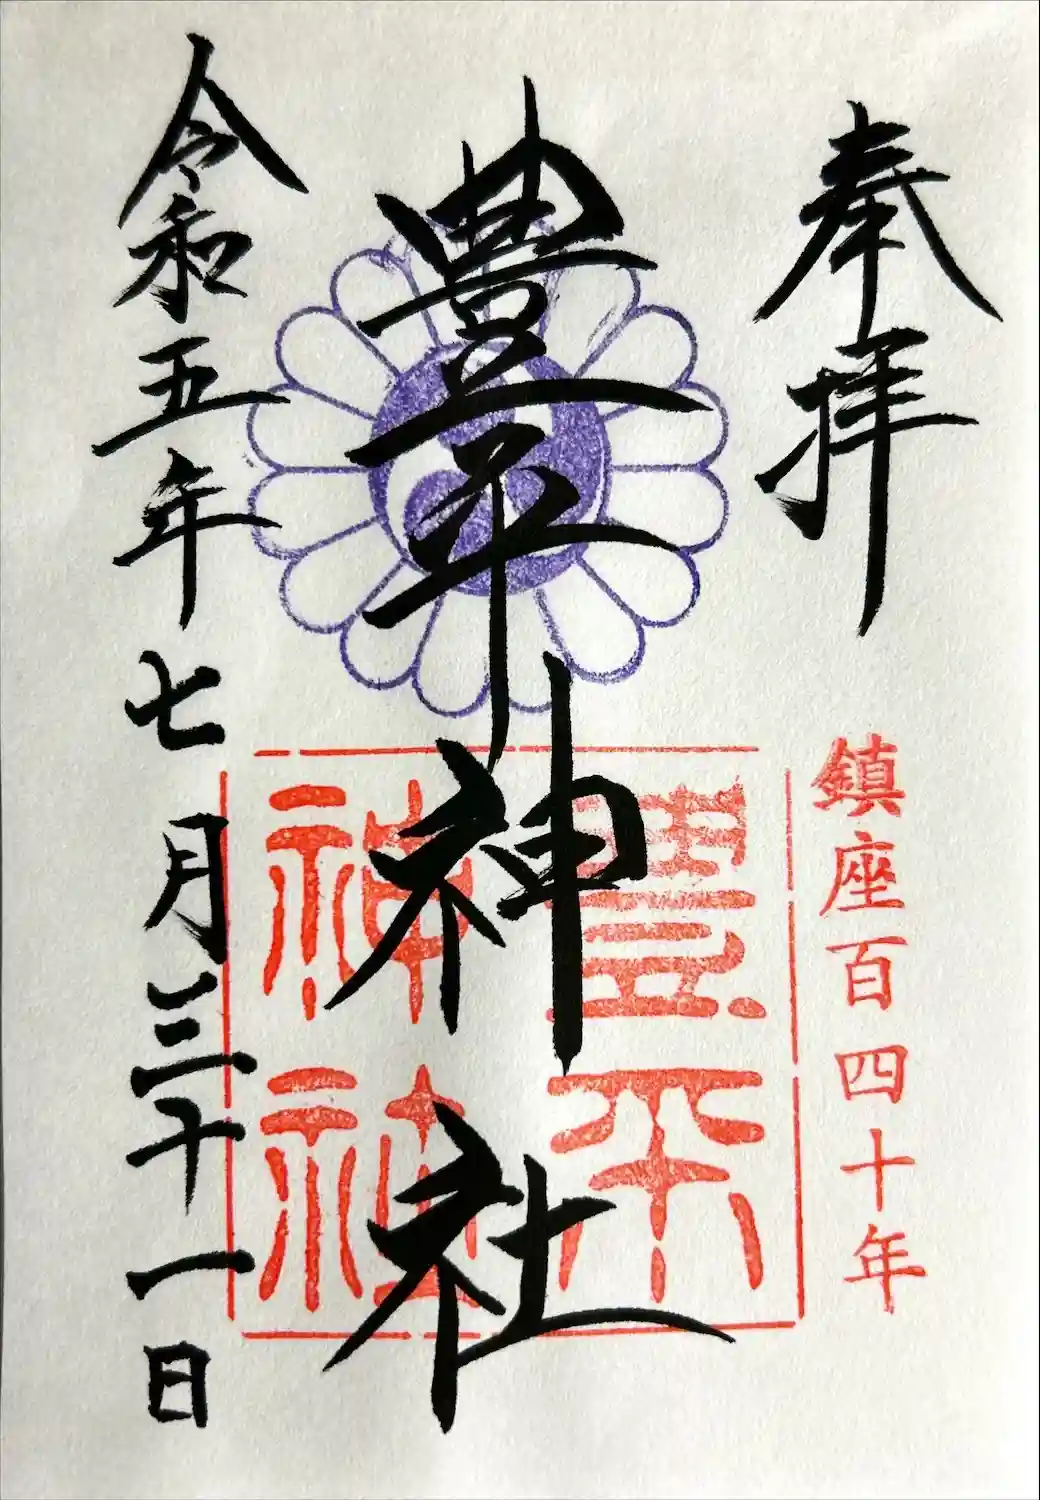 奉拝
鎮座百四十年
豊平神社
豊平
神社
令和五年七月三十一日